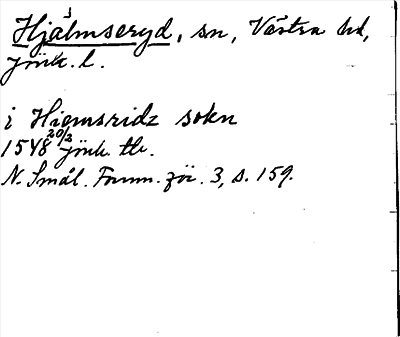 Hjälmseryd, sn, Västra hd,
Jönk. l.
i Hiemsridz sokn
1548 20/3 Jönk. tb.
N. Smål. Fornm. för. 3, s. 159.